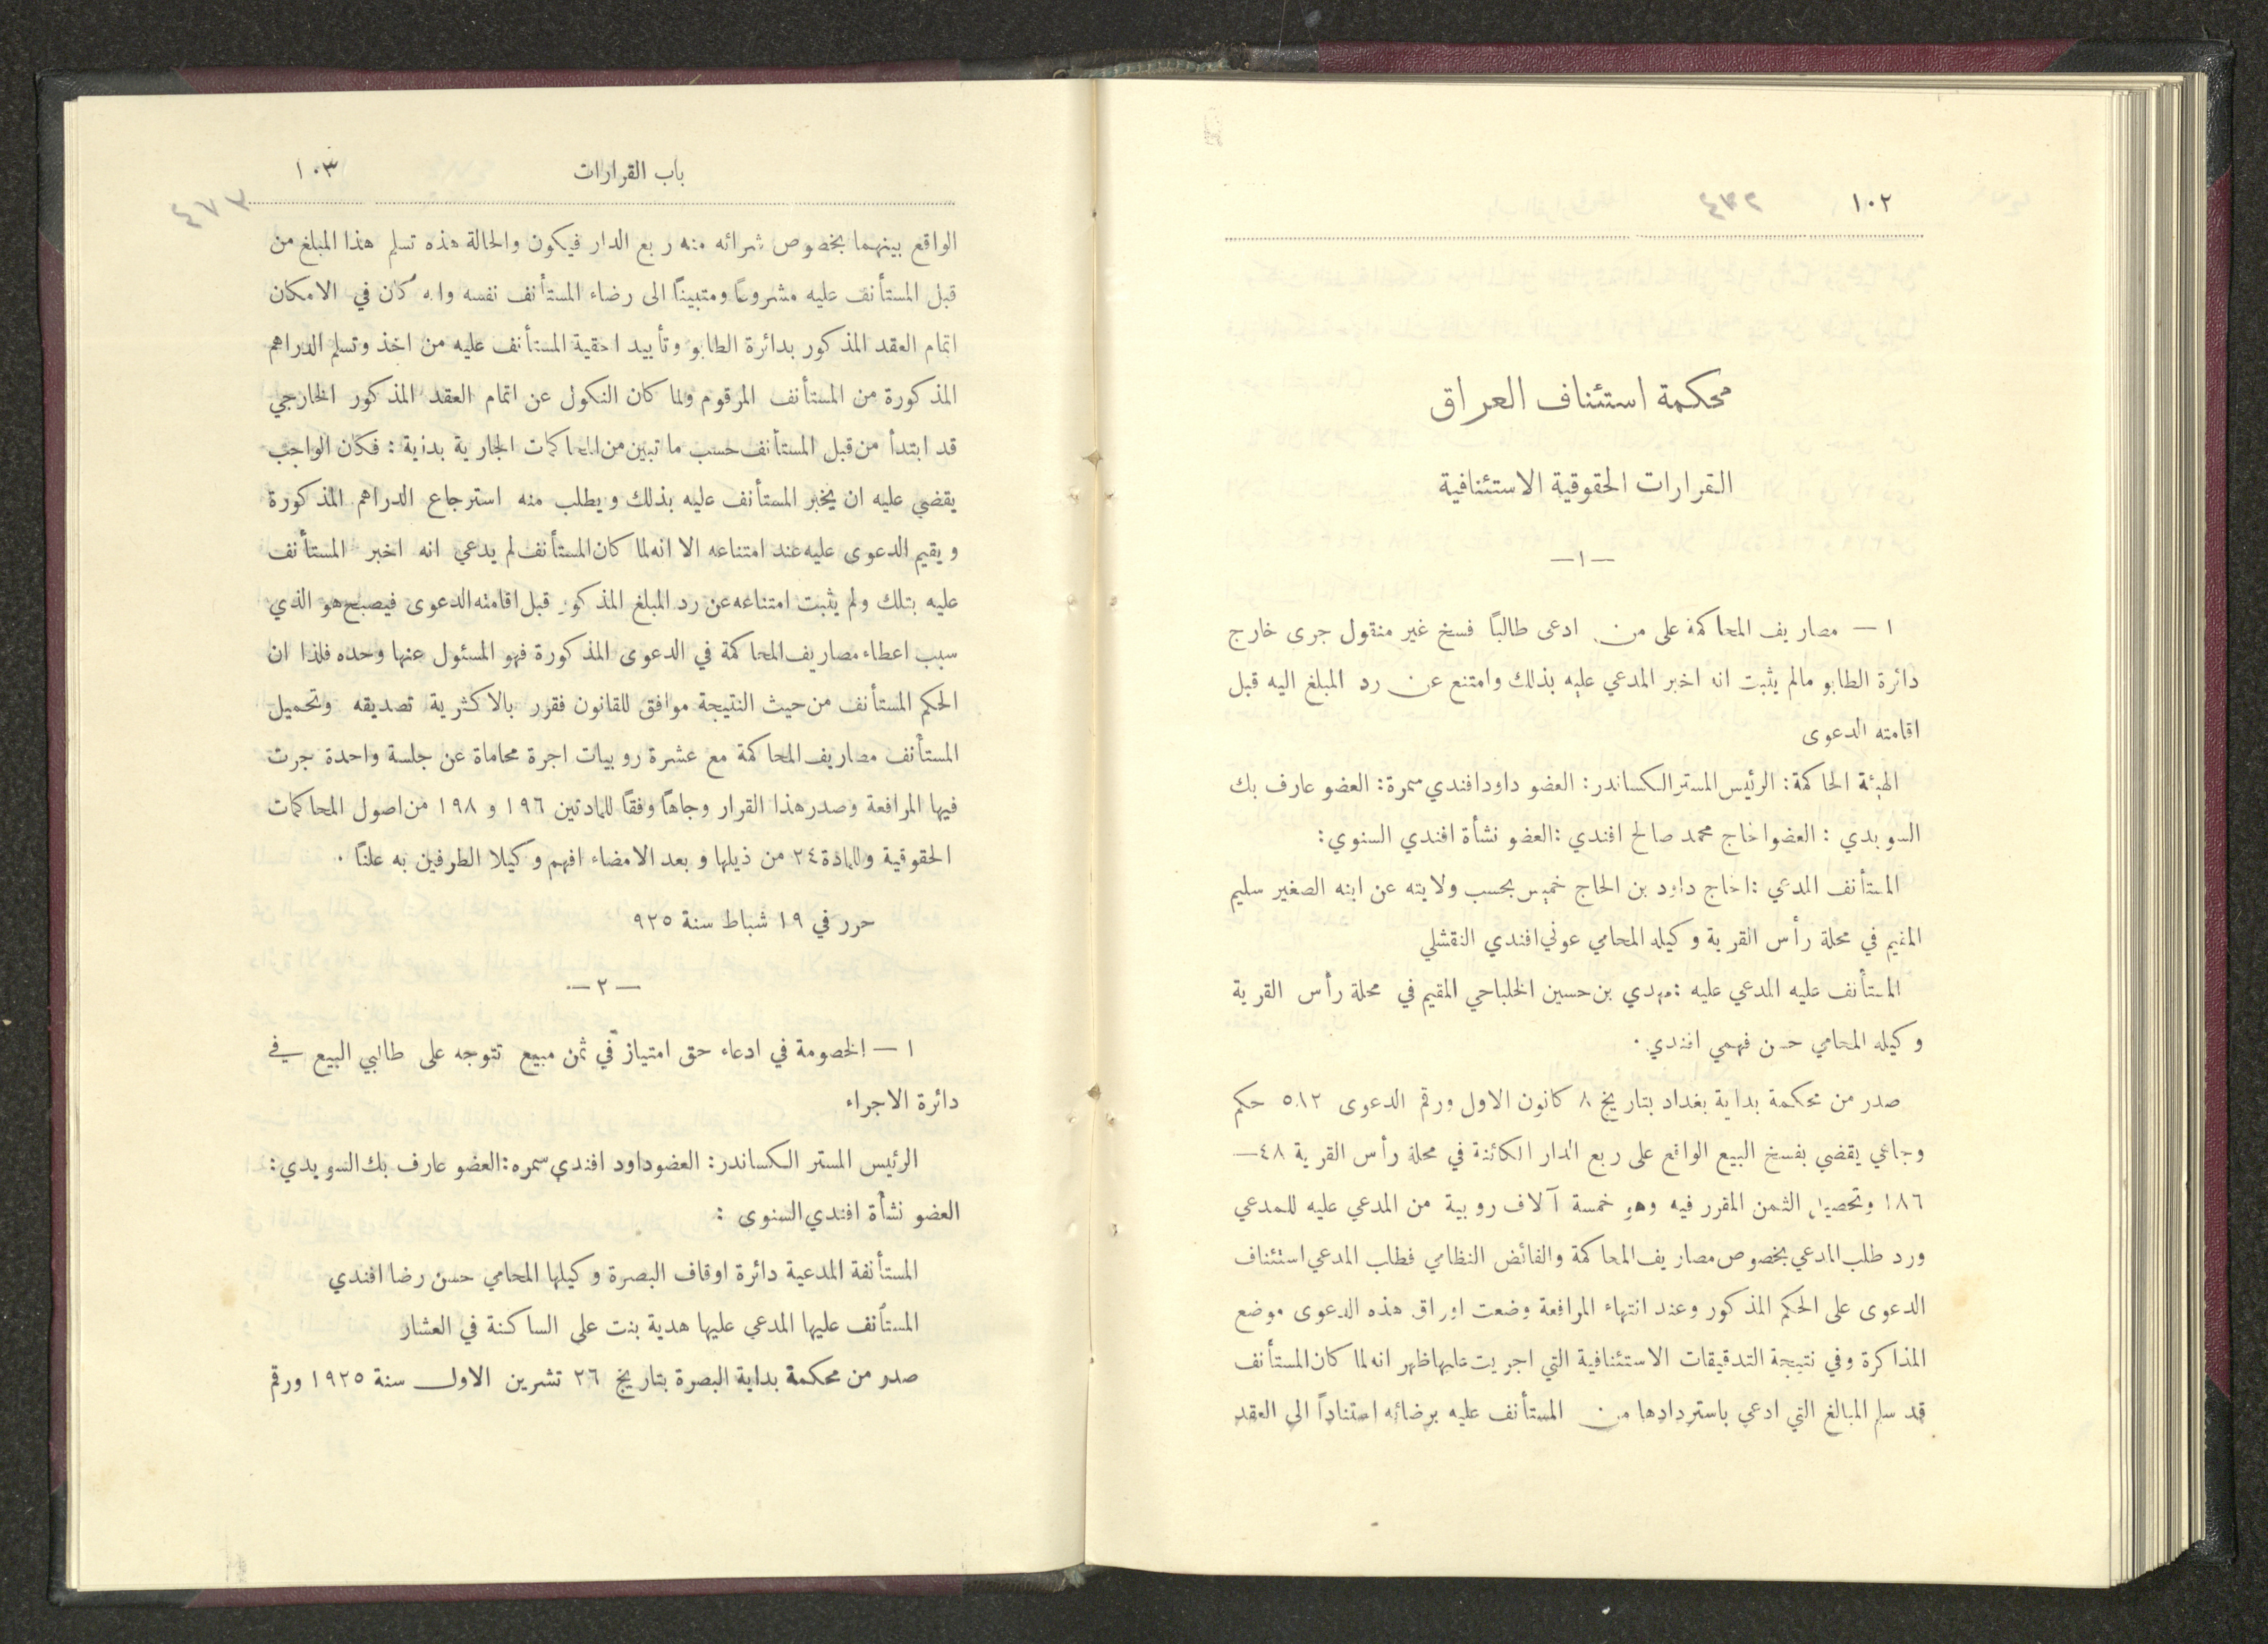 ١٠٢
٤٧٢
محكمة استئناف العراق
القرارات الحقوقية الاستئنافية
—١—
١ — مصاريف المحاكمة على من ادعى طالباً فسخ غير منقول جرى خارج
دائرة الطابو مالم يثبت انه اخبر المدعي عليه بذلك وامتنع عن رد المبلغ اليه قبل
اقامته الدعوى
الهيئة الحاكمة: الرئيس المستر الكساندر: العضو داود افندي سمرة: العضو عارف بك
السويدي : العضو الحاج محمد صالح افندي :العضو نشأة افندي السنوي:
المستأنف المدعي :الحاج داود بن الحاج خميس بحسب ولايته عن ابنه الصغير سليم
المقيم في محلة رأس القرية وكيله المحامي عوني افندي النقشلي
المستأنف عليه المدعي عليه :مهدي بن حسين الخلباحي المقيم في محلة رأس القرية
وكيله المحامي حسن فهمي افندي .
صدر من محكمة بداية بغداد بتاريخ ٨ كانون الاول ورقم الدعوى ٥١٢ حكم
وجاهي يقضي بفسخ البيع الواقع على ربع الدار الكائنة في محلة رأس القرية ٤٨—
١٨٦ وتحصيل الثمن المقرر فيه وهو خمسة آلاف روبية من المدعي عليه للمدعي
ورد طلب المدعي بخصوص مصاريف المحاكمة والفائض النظامي فطلب المدعي استئناف
الدعوى على الحكم المذكور وعند انتهاء المرافعة وضعت اوراق هذه الدعوى موضع
المذاكرة وفي نتيجة التدقيقات الاستئنافية التي اجريت عليها ظهر انه لما كان المستأنف
قد سلم المبالغ التي ادعي باستردادها من المستأنف عليه برضائه استناداً الى العقد
باب القرارات
١٠٣
٤٧٣
الواقع بينهما بخصوص شرائه منه ربع الدار فيكون والحالة هذه تسلم هذا المبلغ من
قبل المستأنف عليه مشروعاً ومتبيناً الى رضاء المستأنف نفسه وانه كان في الامكان
اتمام العقد المذكور بدائرة الطابو وتأييد احقية المستأنف عليه من اخذ وتسلم الدراهم
المذكورة من المستأنف المرقوم ولما كان النكول عن اتمام العقد المذكور الخارجي
قد ابتدأ من قبل المستأنف حسب ما تبين من المحاكمات الجارية بدئية : فكان الواجب
يقضي عليه ان يخبر المستأنف عليه بذلك ويطلب منه استرجاع الدراهم المذكورة
ويقيم الدعوى عليه عند امتناعه الا انه لما كان المستأنف لم يدعي انه اخبر المستأنف
عليه بتلك ولم يثبت امتناعه عن رد المبلغ المذكور قبل اقامته الدعوى فيصبح هو الذي
سبب اعطاء مصاريف المحاكمة في الدعوى المذكورة فهو المسئول عنها وحده فلذا ان
الحكم المستأنف من حيث النتيجة موافق للقانون فقرر بالاكثرية تصديقه وتحميل
المستأنف مصاريف المحاكمة مع عشرة روبيات اجرة محاماة عن جلسة واحدة جرت
فيها المرافعة وصدر هذا القرار وجاهاً وفقاً للمادتين ١٩٦ و ١٩٨ من اصول المحاكمات
الحقوقية وللمادة ٢٤ من ذيلها وبعد الامضاء افهم وكيلا الطرفين به علناً .
حرر في ١٩ شباط سنة ٩٢٥
—٢—
١ — الخصومة في ادعاء حق امتياز في ثمن مبيع تتوجه على طالبي البيع في
دائرة الاجراء
الرئيس المستر الكساندر: العضو داود افندي سمره :العضو عارف بك السويدي:
العضو نشأة افندي السنوى :
المستأنفة المدعية دائرة اوقاف البصرة وكيلها المحامي حسن رضا افندي
المستأنف عليها المدعي عليها هدية بنت علي الساكنة في العشار
صدر من محكمة بداية البصرة بتاريخ ٢٦ تشرين الاول سنة ١٩٢٥ ورقم